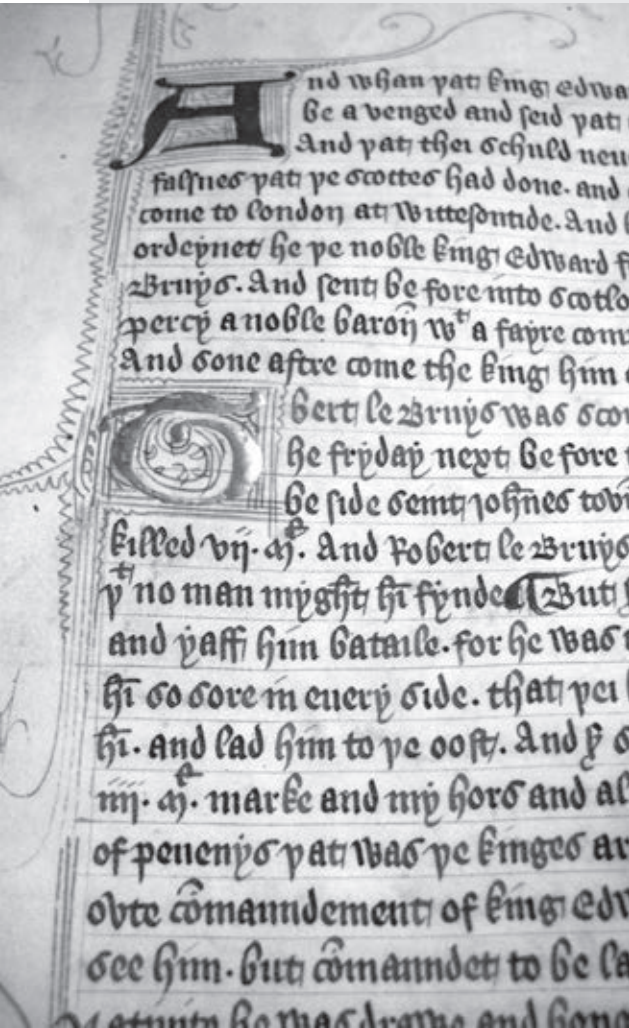 And whan þat king Edwa
be a venged and seid þat
And þat thei schuld neu
falsnes þat þe scottes had done. and
come to london at Wittesontide. And
ordeynet he þe noble king Edward
Bruys. And sent be fore into scotlo
percy a noble baron wᵗ a fayre com
And sone aftre come the king him
bert le Bruys was sco
he fryday next be fore
be side seint Joh̄nes tow
killed vij. M̕. And Robert le Bruys
yᵗ no man myght hī fynde ¶ But
and yaff him bataile. for he was
hī so sore in euery side. that þei
hī. and lad him to þe oost. And
iiij. M̕. marke and my hors and al
of peuenys þat was þe kinges
ovte cōmaundement of king Edw
see him. but cōmaundet to be la
he was drawe and hong